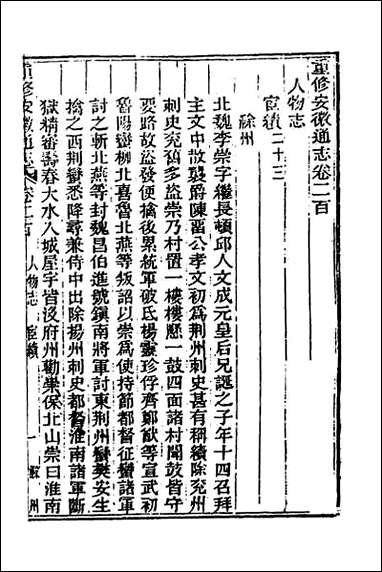 重修安徽通志卷二百
人物志
宦績二十三
滁州
北魏李崇字繼長頓邱人文成元皇后兄誕之子年十四召拜
主文中散襲爵陳畱公孝文初為荆州刺史甚有稱績除兖州
刺史兖舊多盜崇乃村置一樓樓懸一鼓四面諸村聞鼓皆守
要路故盜發便擒後累統軍破氐楊靈珍俘齊鄭猷等宣武初
魯陽蠻柳北喜魯北燕等叛詔以崇為使持節都督征蠻諸軍
討之斬北燕等封魏昌伯進號鎮南將軍討東荆州蠻樊安生
擒之西荆蠻悉降尋兼侍中出除揚州刺史都督淮南諸軍斷
獄精審壽春大水入城屋宇皆沒府州勸崇保北山崇曰淮南
重修安徽通志
卷二百
人物志
宦績
一